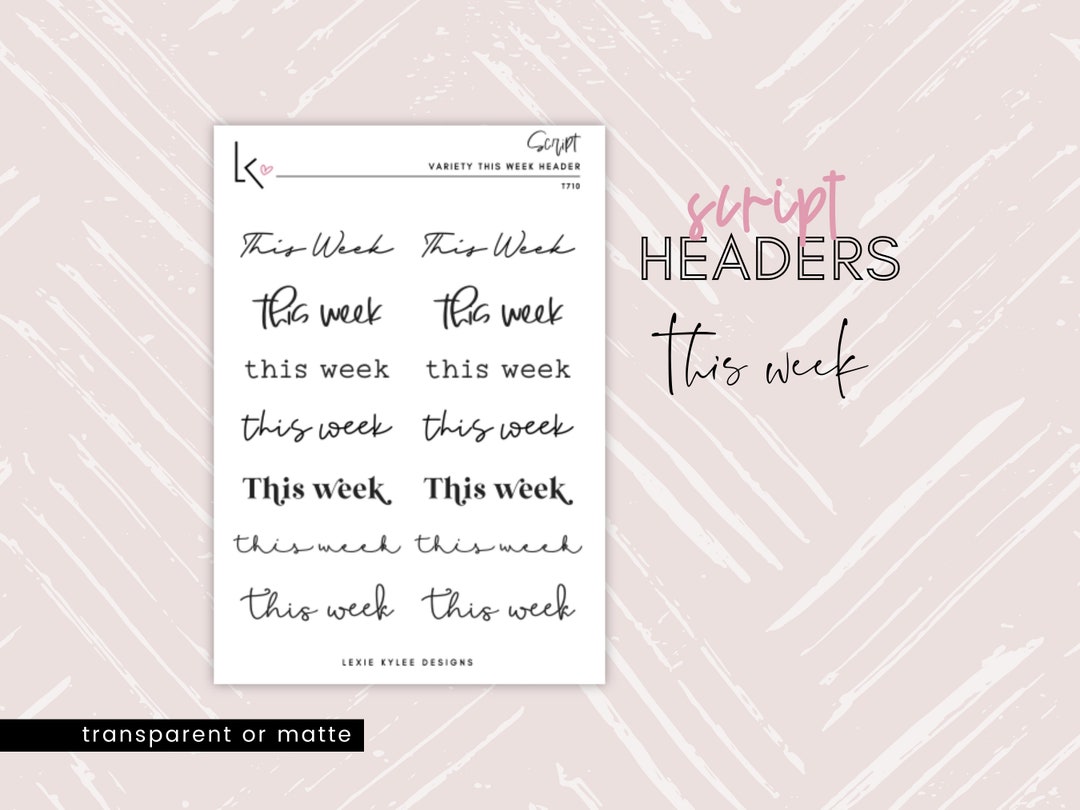 LK
Script
VARIETY THIS WEEK HEADER
T710
This Week This Week
this week this week
this week this week
this week this week
This week This week
this week this week
this week this week
LEXIE KYLEE DESIGNS
script
HEADERS
this week
transparent or matte